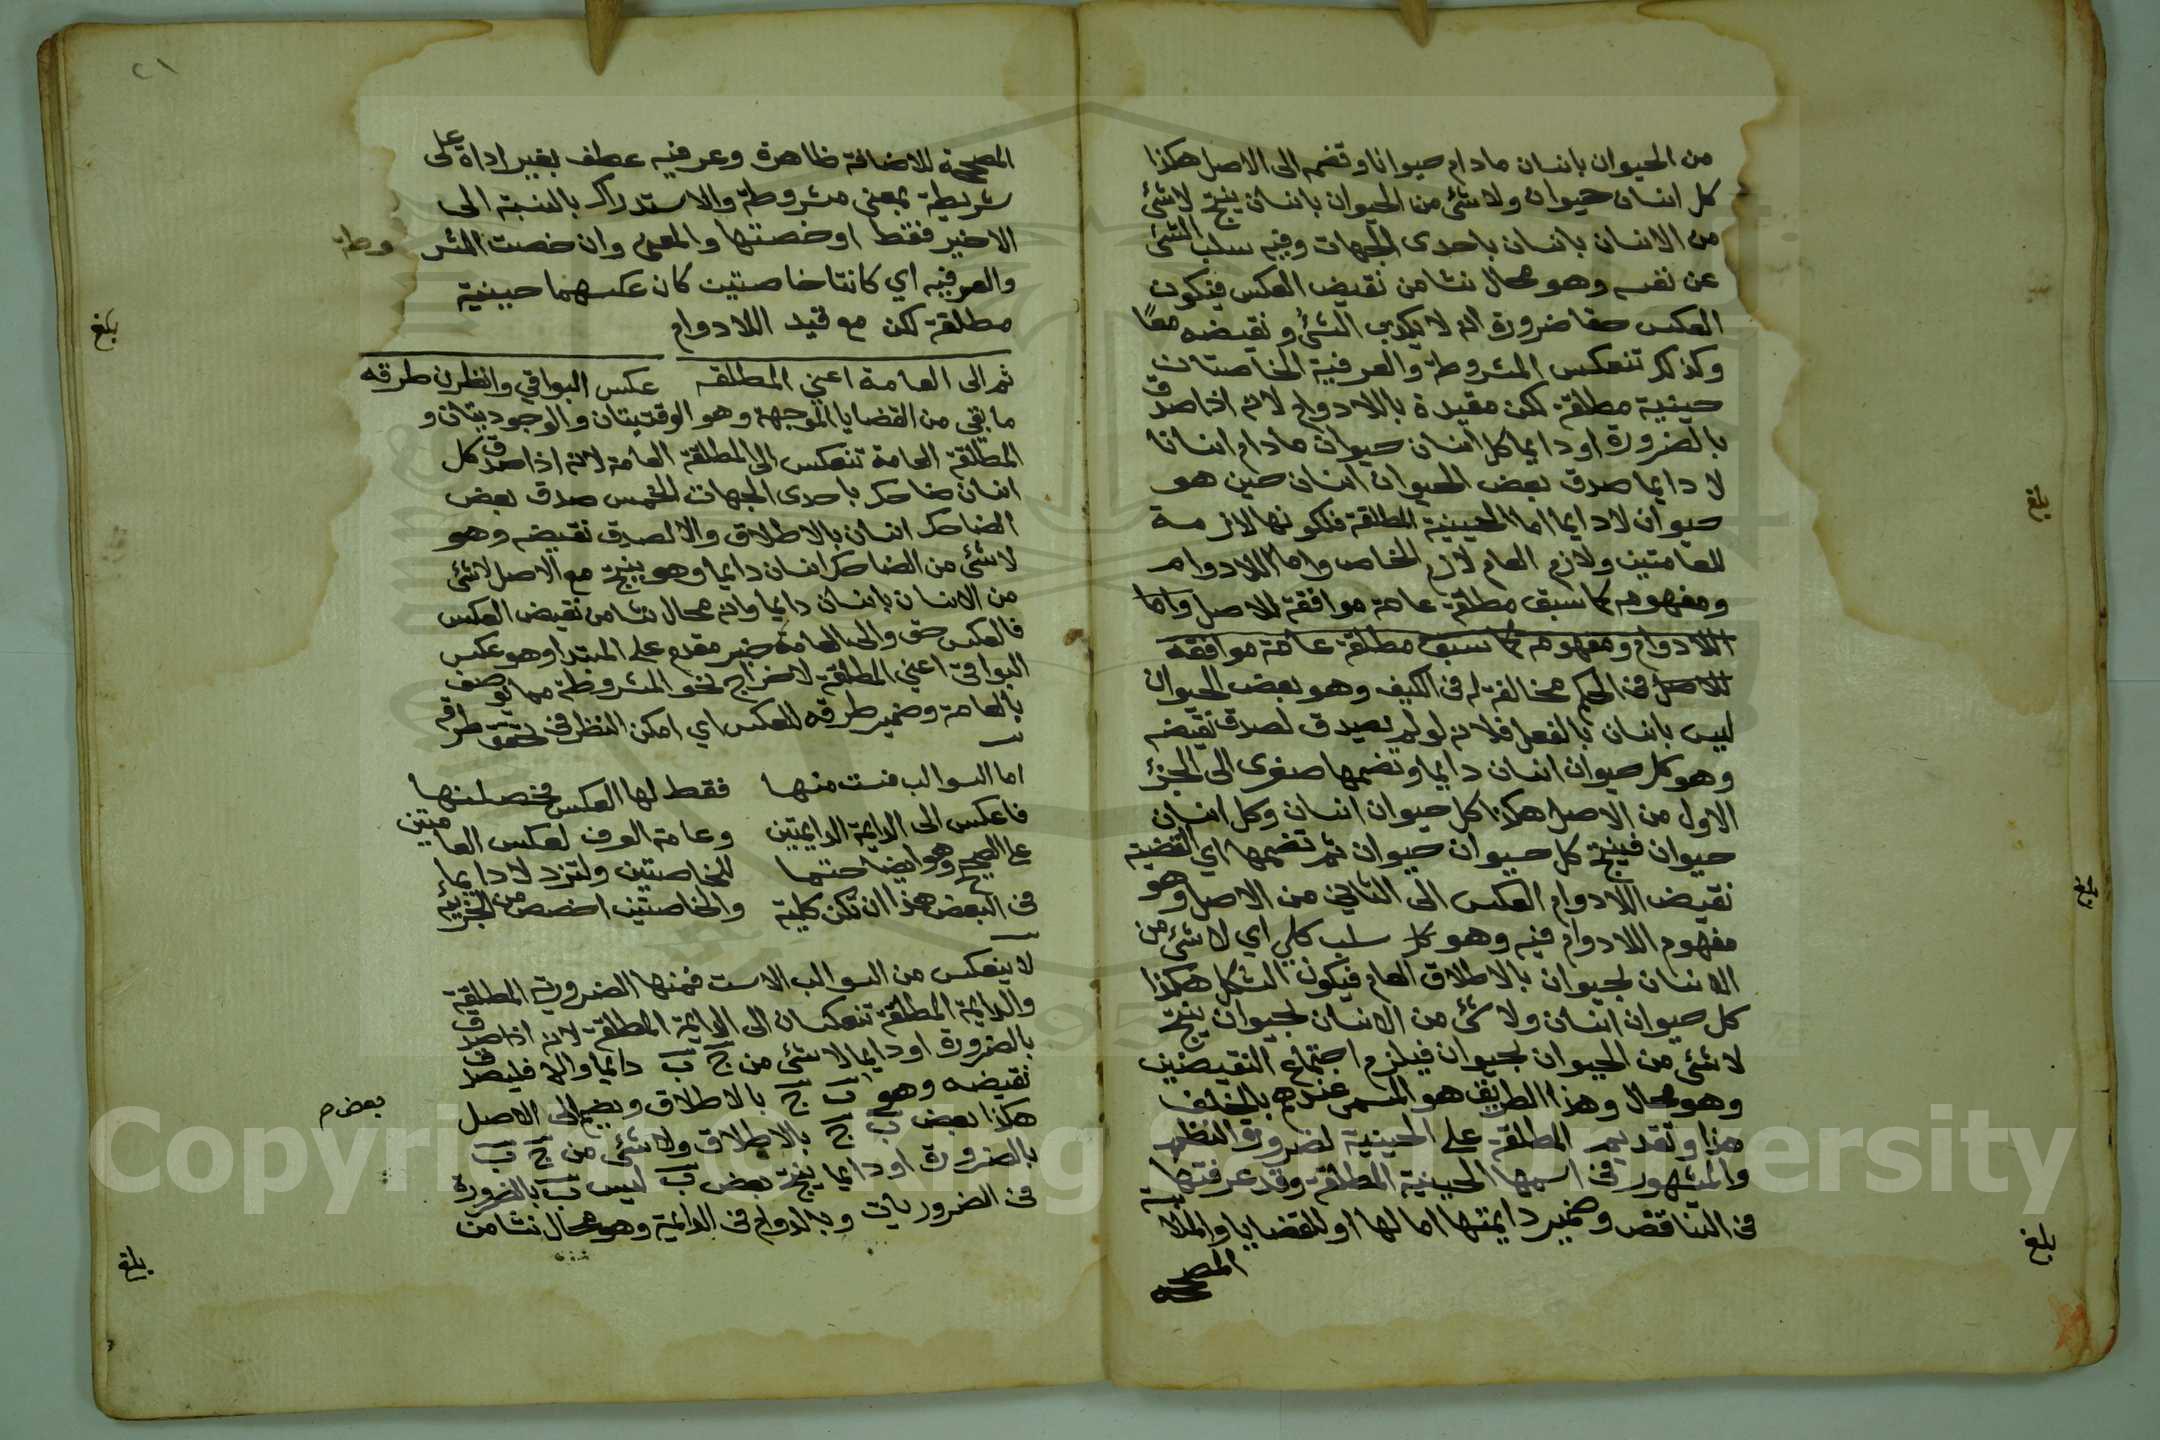 من الحيوان بانسان مادام حيوانا وتضمه الى الاصل هكذا
كل انسان حيوان ولا شئ من الحيوان بانسان ينتج لا شئ
من الانسان بانسان باحدى الجهات وفيه سلب الشئ
عن نفسه وهو محال نشا من نقيض العكس فيكون
العكس حقا ضرورة انه لا يكذب الشئ ونقيضه معًا
وكذلك تنعكس المشروطة والعرفية الخاصتان
حينية مطلقة لكن مقيدة باللادوام لانه اذا صدق
بالضرورة او دايما كل انسان حيوان مادام انسانا
لا دايما صدق بعض الحيوان انسان حين هو
حيوان لا دايما اما الحينية المطلقة فلكونها لازمة
للعامتين ولازم العام لازم الخاص واما اللادوام
ومفهومه كما سبق مطلقة عامة موافقة للاصل واما
اللادوام ومفهومه كما سبق مطلقة عامة موافقه
للاصل فى الحكم مخالفة له فى الكيف وهو بعض الحيوان
ليس بانسان بالفعل فلانه لو لم يصدق لصدق نقيضه
وهو كل حيوان انسان دايما وتضمها صغرى الى الجزء
الاول من الاصل هكذا كل حيوان انسان وكل انسان
حيوان فينتج كل حيوان حيوان ثم تضمها اي القضية
نقيض اللادوام العكس الى الثاني من الاصل وهو
مفهوم اللادوام فيه وهو كل سلب كلي اي لا شئ من
الانسان بحيوان بالاطلاق العام فيكون الشكل هكذا
كل حيوان انسان ولا شئ من الانسان بحيوان ينتج
لا شئ من الحيوان بحيوان فيلزم اجتماع النقيضين
وهو محال وهذا الطريق هو المسمى عندهم بالخلف
هذا وتقديم المطلقة على الحينية لضرورة النظم
والمشهور فى اسمها الحينية المطلقة وقد عرفتها
فى التناقض وضمير دايمتها اما لها او للقضايا والملابسة
المصححة
بلغ
بلغ
بلغ
٢١
المصححة للاضافة ظاهرة وعرفيه عطف بغير اداة على
شريطية بمعنى مشروطة والاستدراك بالنسبة الى
الاخير فقط او خصتها والمعنى وان خصت المشروطة
والعرفيه اي كانتا خاصتين كان عكسهما حينية
مطلقة لكن مع قيد اللادوام
ثم الى العامة اعني المطلقه عكس البواقي وانظرن طرقه
ما بقي من القضايا الموجهة وهو الوقتيتان والوجوديتان و
المطلقة العامة تنعكس الى المطلقة العامة لانه اذا صدق كل
انسان ضاحك باحدى الجهات الخمس صدق بعض
الضاحك انسان بالاطلاق والا لصدق نقيضه وهو
لا شئ من الضاحك انسان دايما وهو ينتج مع الاصل لا شئ
من الانسان بانسان دايما وانه محال نشا من نقيض العكس
فالعكس حق والى العامة خبر مقدم على المبتدا وهو عكس
البواقي اعني المطلقة لاخراج نحو المشروطة مما يوصف
بالعامة وضمير طرقه للعكس اي امكن النظر فى تحقق طرقه
اما السوالب فست منها فقط لها العكس فخصلنها
فاعكس الى الدايمة الدايمتين وعامة العرف لعكس العامتين
على الصحيح وهو ايضا حتما للخاصتين ولتزد لا دايما
فى البعض هذا ان تكن كلية والخاصتين اخصص من الجزئيه
لا ينعكس من السوالب الا ست فمنها الضرورية المطلقة
والدايمة المطلقة تنعكسان الى الدايمة المطلقة لانه اذا صدق
بالضرورة او دايما لا شئ من ج ب دايما والا فليصدق
نقيضه وهو ب ج بالاطلاق ويضم الى الاصل
بعض م
هكذا بعض ب ج بالاطلاق ولا شئ من ج ب
بالضرورة او دايما ينتج بعض ب ليس ب بالضرورة
فى الضروريات وبالدوام فى الدايمة وهو محال نشا من
بلغ
بلغ
Copyright © King Saud University